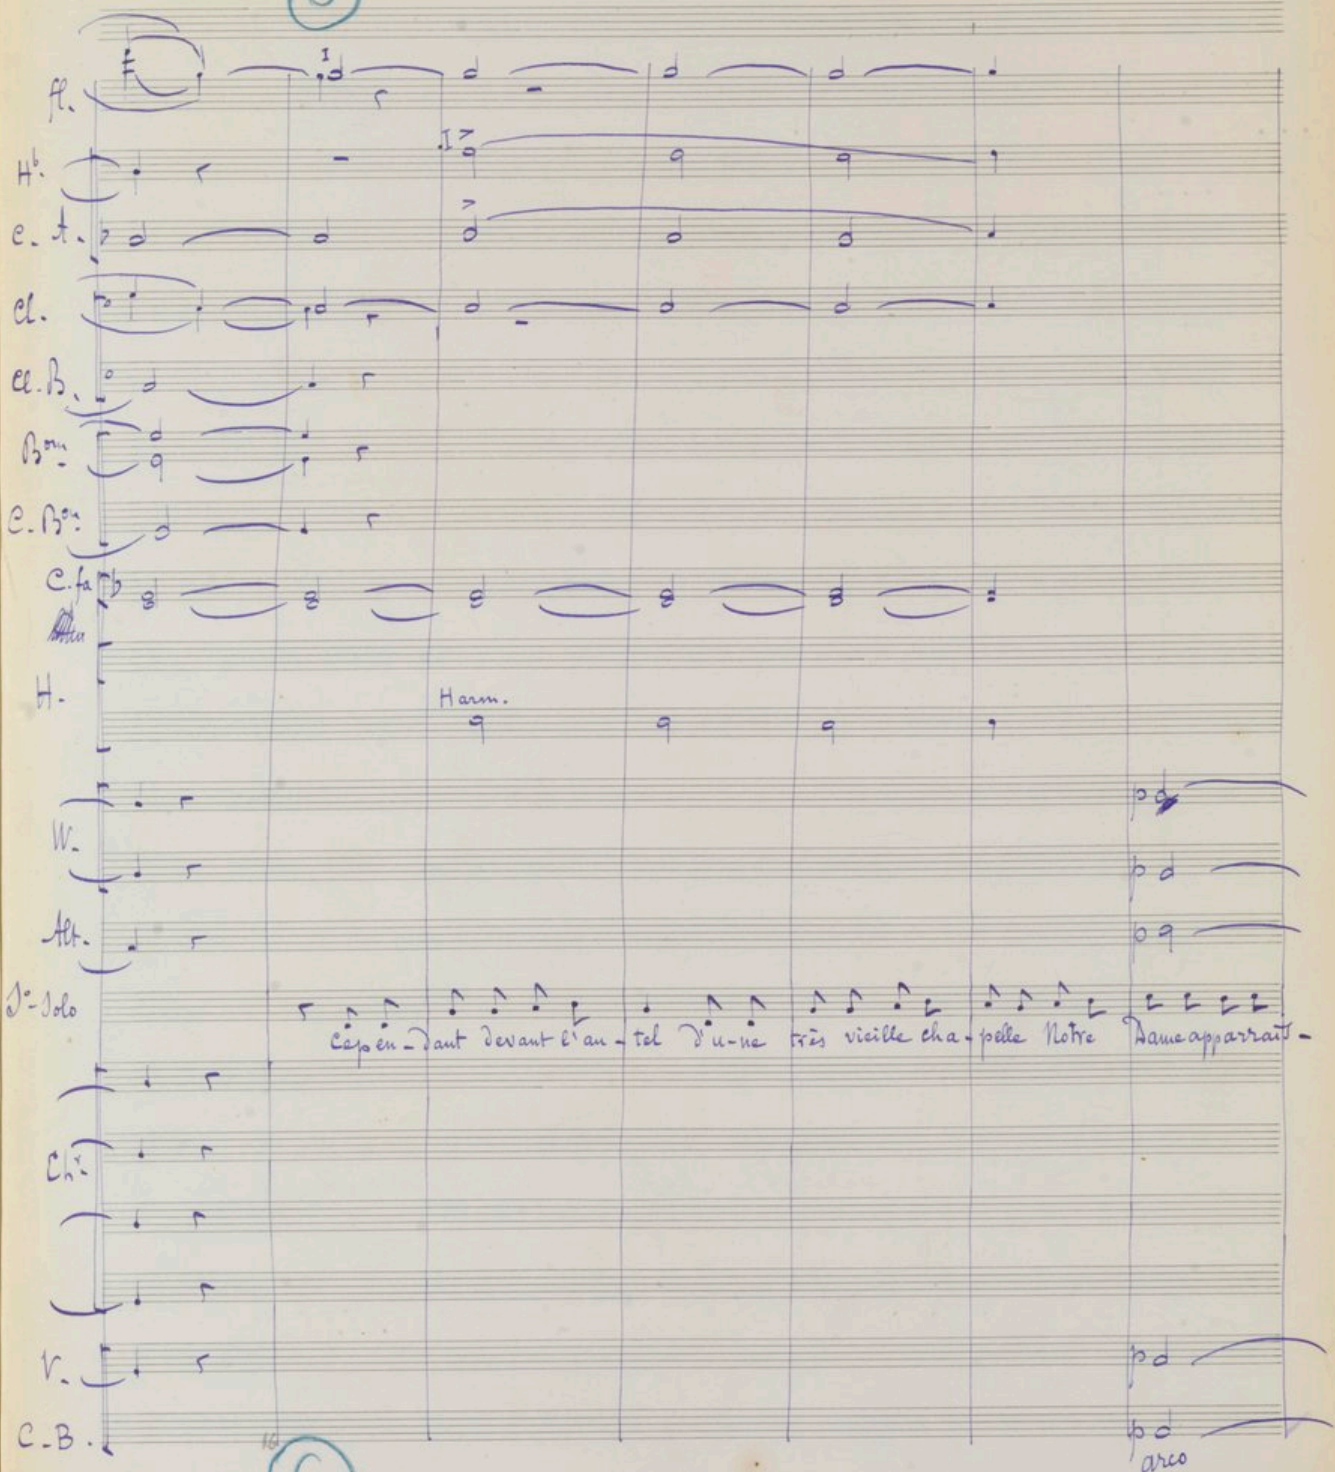 I
fl.
I
Hb.
C. A.
Cl.
Cl. B.
Bon.
C. Bon.
C. fa
H.
Harm.
p
p
Alt.
p
So-Solo
Cepen-dant devant l'au-tel d'u-ne très vieille cha-pelle Notre Dame apparrait-
Chr.
V.
p
C-B.
p
16
arco